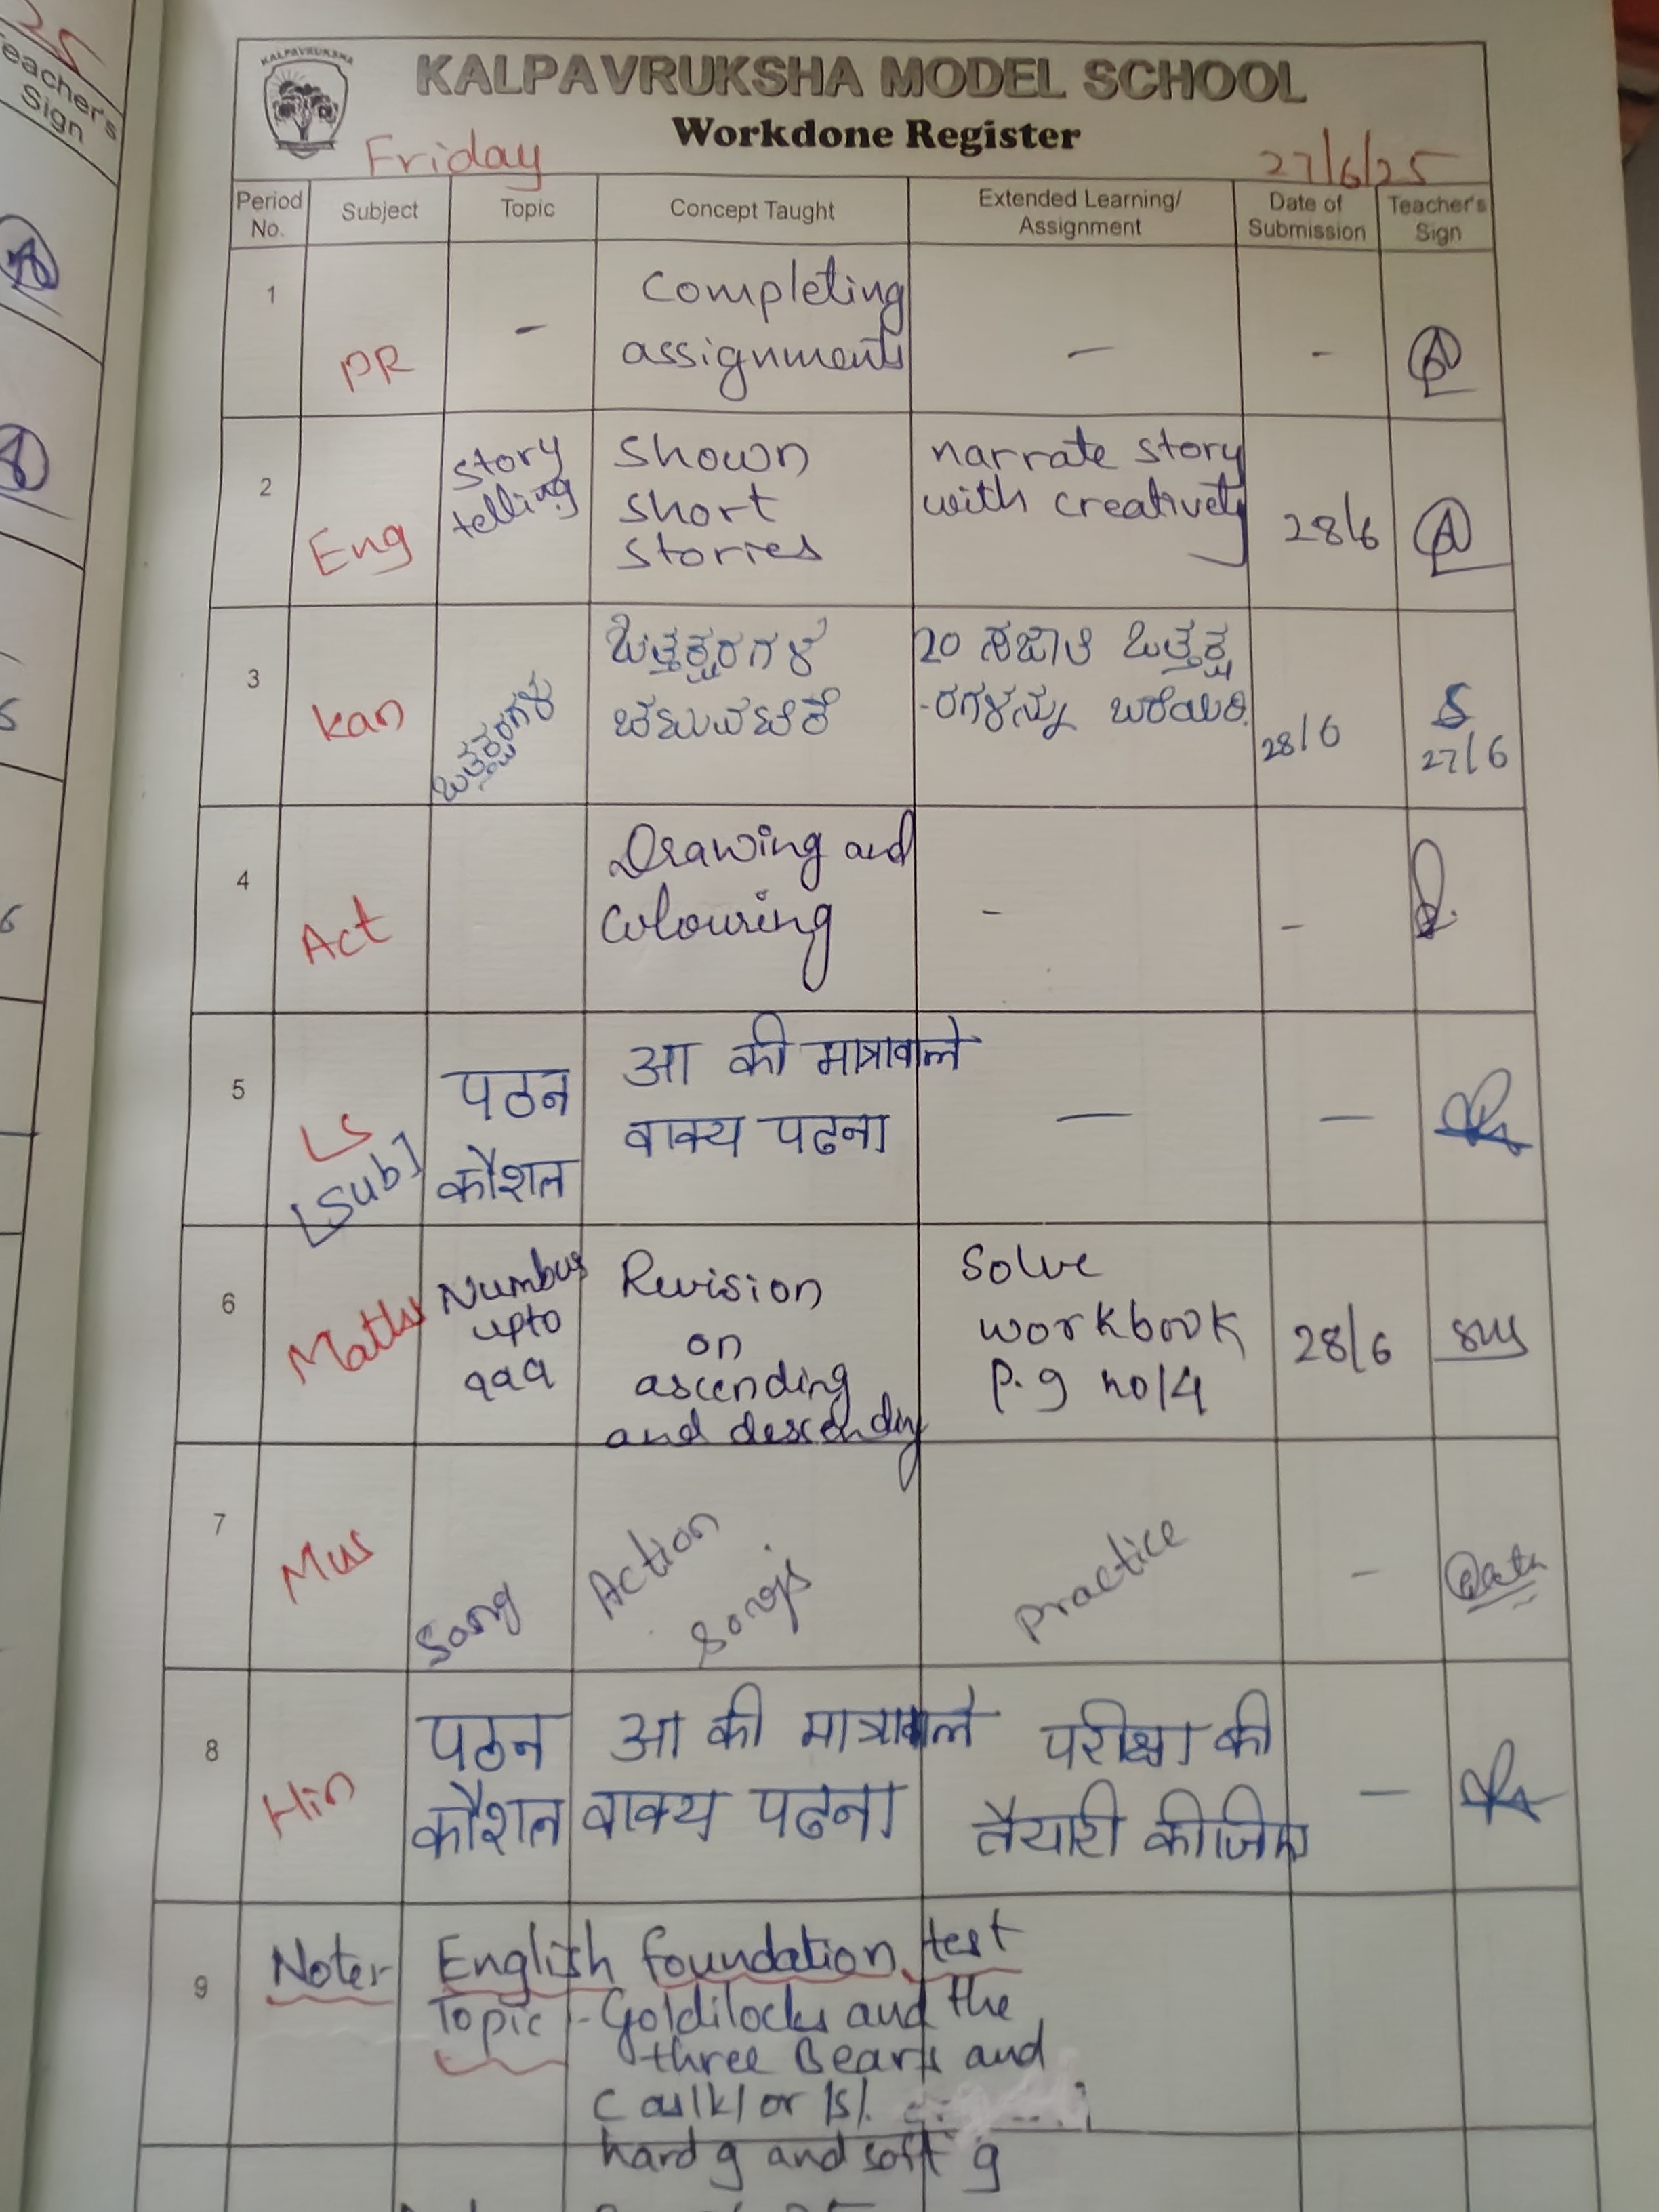 25
Teacher's
Sign
KALPAVRUKSHA
KALPAVRUKSHA MODEL SCHOOL
Workdone Register
Friday
27/6/25
Period No. Subject Topic Concept Taught Extended Learning/ Assignment Date of Submission Teacher's Sign
1 PR - Completing
assignments - -
2 Eng Story
telling Shown
short
stories narrate story
with creatively 28/6
3 kan ಒತ್ತಕ್ಷರಗಳು ಒತ್ತಕ್ಷರಗಳ
ಚಟುವಟಿಕೆ 20 ಸಜಾತಿ ಒತ್ತಕ್ಷ
-ರಗಳನ್ನು ಬರೆಯಿರಿ. 28/6 27/6
4 Act Drawing and
Colouring - -
5 LS
[Sub] पठन
कौशल आ की मात्रावाले
वाक्य पढना - -
6 Maths Numbers
upto
999 Revision
on
ascending
and descending Solve
workbook
P.g no 14 28/6
7 Mus Song Action
Songs practice -
8 Hin पठन
कौशल आ की मात्रावाले
वाक्य पढना परीक्षा की
तैयारी कीजिए -
9 Note:- English foundation test
Topic :- Goldilocks and the
three Bears and
C as /k/ or /s/.
hard g and soft g